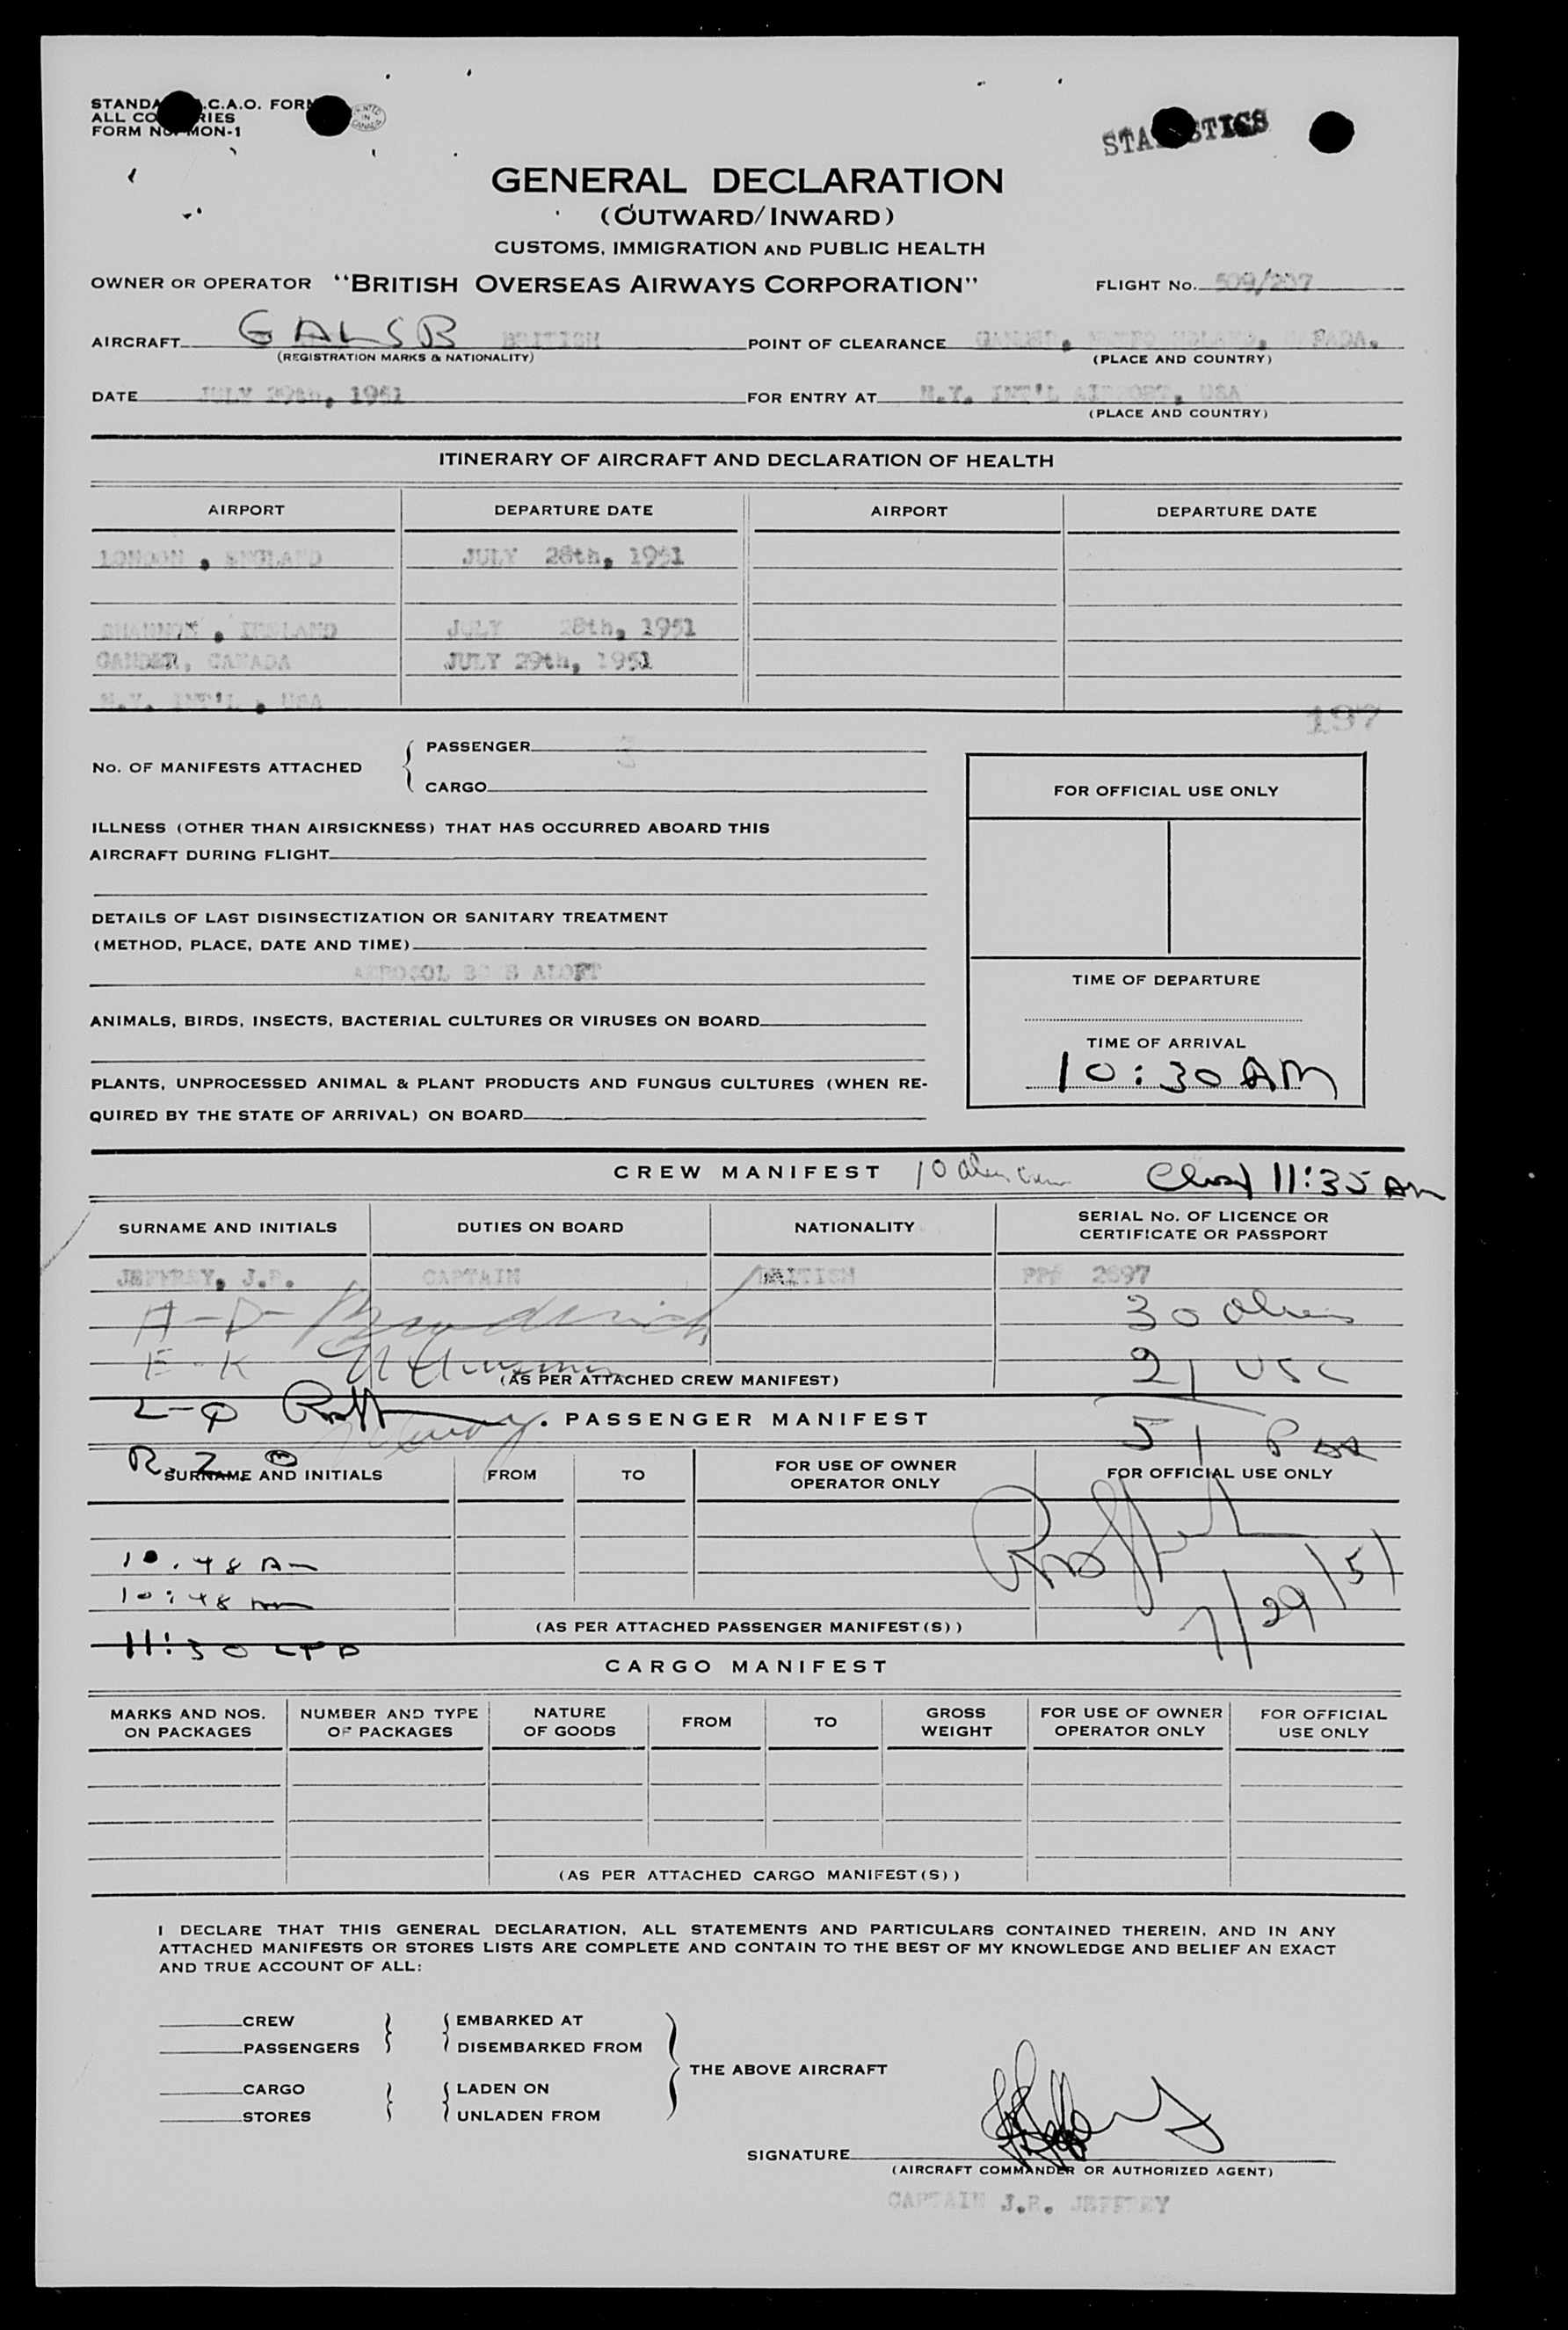 STANDA .C.A.O. FORM
ALL CO RIES
FORM No. MON-1
PRINTED IN CANADA
STATISTICS
GENERAL DECLARATION
(OUTWARD/INWARD)
CUSTOMS, IMMIGRATION AND PUBLIC HEALTH
OWNER OR OPERATOR "BRITISH OVERSEAS AIRWAYS CORPORATION" FLIGHT No. 509/207
AIRCRAFT G ALSB BRITISH POINT OF CLEARANCE GANDER, CANADA.
(REGISTRATION MARKS & NATIONALITY) (PLACE AND COUNTRY)
DATE JULY 29th, 1951 FOR ENTRY AT N.Y. INT'L AIRPORT, USA
(PLACE AND COUNTRY)
ITINERARY OF AIRCRAFT AND DECLARATION OF HEALTH
AIRPORT DEPARTURE DATE AIRPORT DEPARTURE DATE
LONDON, ENGLAND JULY 28th, 1951
SHANNON, IRELAND JULY 28th, 1951
GANDER, CANADA JULY 29th, 1951
N.Y. INT'L, USA
197
No. OF MANIFESTS ATTACHED
PASSENGER 3
CARGO
FOR OFFICIAL USE ONLY
ILLNESS (OTHER THAN AIRSICKNESS) THAT HAS OCCURRED ABOARD THIS
AIRCRAFT DURING FLIGHT
DETAILS OF LAST DISINSECTIZATION OR SANITARY TREATMENT
(METHOD, PLACE, DATE AND TIME)
AEROSOL ALOFT
TIME OF DEPARTURE
ANIMALS, BIRDS, INSECTS, BACTERIAL CULTURES OR VIRUSES ON BOARD
TIME OF ARRIVAL
10:30 AM
PLANTS, UNPROCESSED ANIMAL & PLANT PRODUCTS AND FUNGUS CULTURES (WHEN RE-
QUIRED BY THE STATE OF ARRIVAL) ON BOARD
CREW MANIFEST 10 11:35 AM
SURNAME AND INITIALS DUTIES ON BOARD NATIONALITY SERIAL No. OF LICENCE OR
CERTIFICATE OR PASSPORT
JEFFREY, J.R. CAPTAIN BRITISH 2697
A-D 30
E-K 21 USC
(AS PER ATTACHED CREW MANIFEST)
L-Q
PASSENGER MANIFEST 51
R.Z.
SURNAME AND INITIALS FROM TO FOR USE OF OWNER
OPERATOR ONLY FOR OFFICIAL USE ONLY
10.48 AM
10:48 AM
7/29/51
(AS PER ATTACHED PASSENGER MANIFEST(S))
11:30
CARGO MANIFEST
MARKS AND NOS.
ON PACKAGES NUMBER AND TYPE
OF PACKAGES NATURE
OF GOODS FROM TO GROSS
WEIGHT FOR USE OF OWNER
OPERATOR ONLY FOR OFFICIAL
USE ONLY
(AS PER ATTACHED CARGO MANIFEST(S))
I DECLARE THAT THIS GENERAL DECLARATION, ALL STATEMENTS AND PARTICULARS CONTAINED THEREIN, AND IN ANY
ATTACHED MANIFESTS OR STORES LISTS ARE COMPLETE AND CONTAIN TO THE BEST OF MY KNOWLEDGE AND BELIEF AN EXACT
AND TRUE ACCOUNT OF ALL:
CREW EMBARKED AT
PASSENGERS DISEMBARKED FROM
THE ABOVE AIRCRAFT
CARGO LADEN ON
STORES UNLADEN FROM
SIGNATURE
(AIRCRAFT COMMANDER OR AUTHORIZED AGENT)
CAPTAIN J.R. JEFFREY